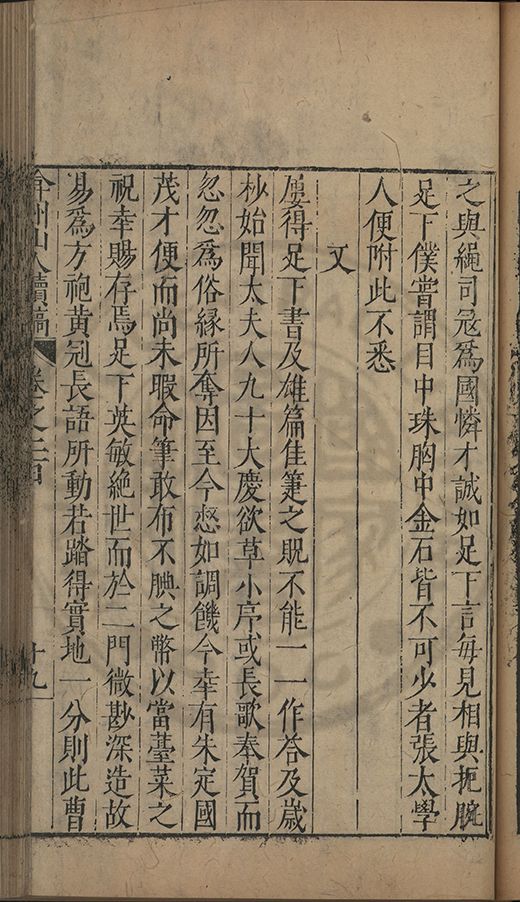 之與繩司冦爲國憐才誠如足下言毎見相與扼腕
足下僕嘗謂目中珠胸中金石皆不可少者張太學
人便附此不悉
又
屢得足下書及雄篇佳箑之貺不能一一作答及嵗
杪始聞太夫人九十大慶欲草小序或長歌奉賀而
忽忽爲俗縁所奪因至今惄如調饑今幸有朱定國
茂才便而尚未暇命筆敢布不腆之幣以當薹菜之
祝幸賜存焉足下英敏絶世而於二門微尠深造故
易爲方袍黄冠長語所動若踏得實地一分則此曹
弇州山人續稿 卷之二百 十九